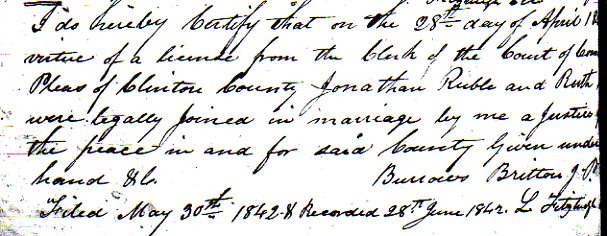 I do hereby Certify that on the 28th day of April 18
virtue of a license from the Clerk of the Court of Com
Pleas of Clinton County Jonathan Ruble and Ruth
were legally joined in marriage by me a Justice
the peace in and for said County Given under
hand &c. Burrows Britton J.P.
Filed May 30th 1842 & Recorded 28th June 1842. L Fitzhugh